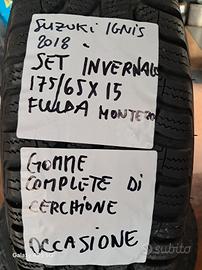 SUZUKI IGNIS
2018.
SET INVERNALE
175/65X15
FULDA MONTERO
GOMME
COMPLETE DI
CERCHIONE
OCCASIONE
subito